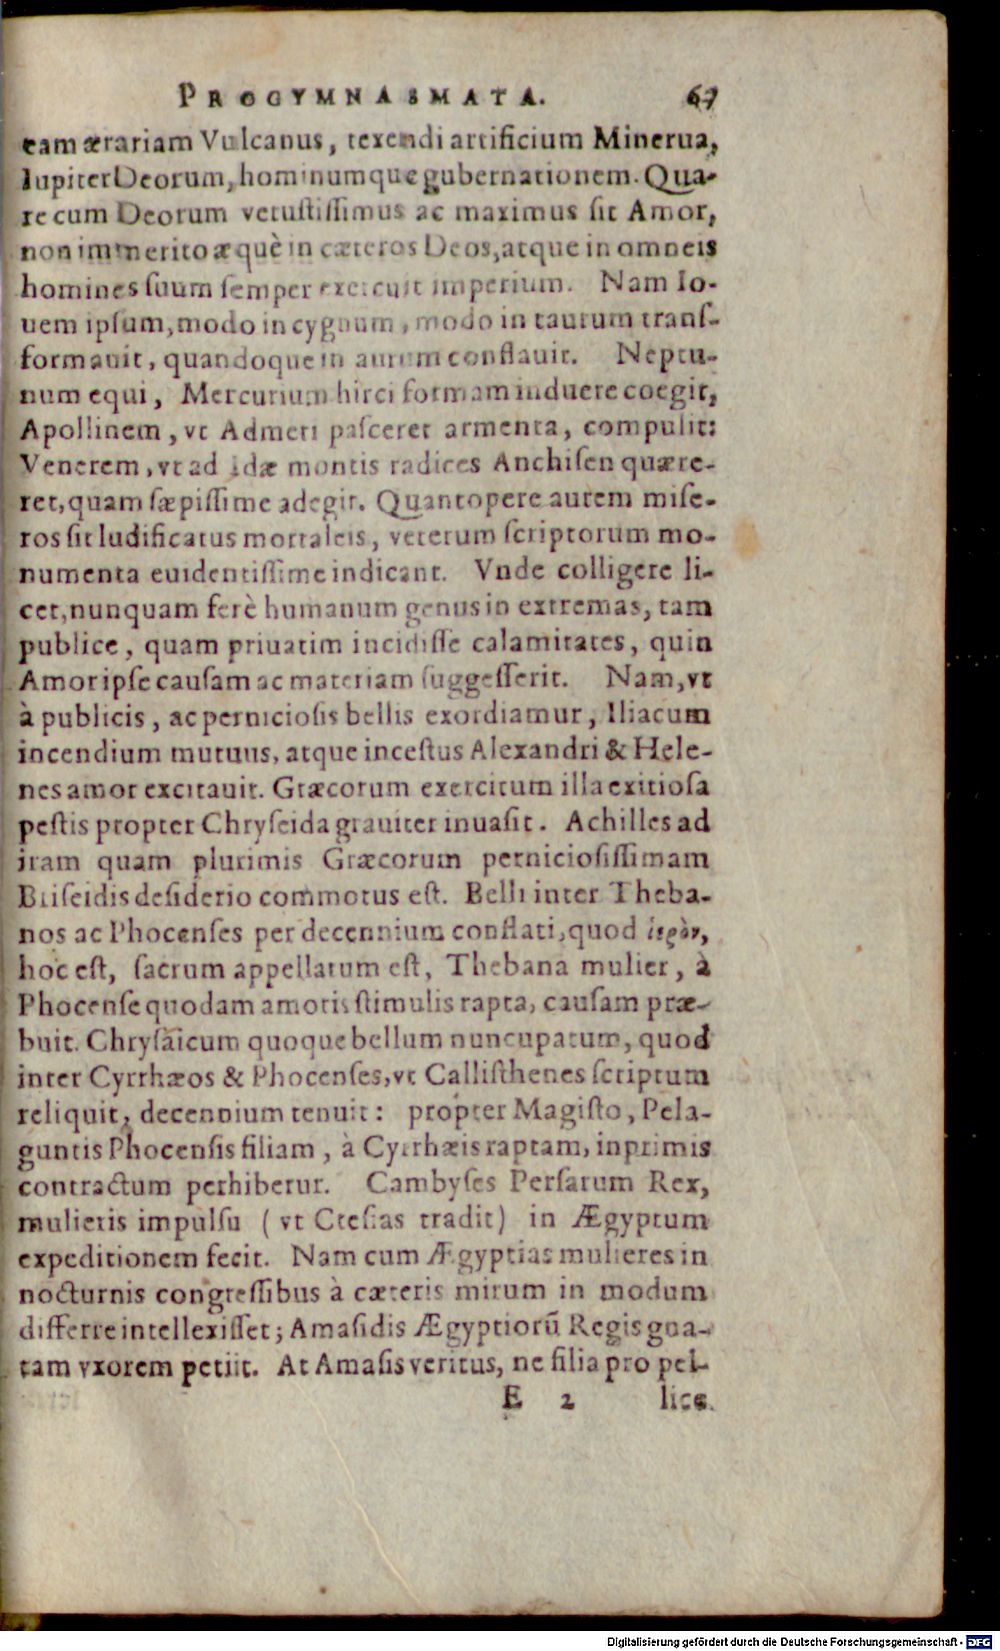 PROGYMNASMATA. 67
eam ærariam Vulcanus, texendi artificium Minerua,
Iupiter Deorum, hominumque gubernationem. Qua-
re cum Deorum vetustissimus ac maximus sit Amor,
non immerito æquè in cæteros Deos, atque in omneis
homines suum semper exercuit imperium. Nam Io-
uem ipsum, modo in cygnum, modo in taurum trans-
formauit, quandoque in aurum conflauit. Neptu-
num equi, Mercurium hirci formam induere coegit,
Apollinem, vt Admeti pasceret armenta, compulit:
Venerem, vt ad Idæ montis radices Anchisen quære-
ret, quam sæpissime adegit. Quantopere autem mise-
ros sit ludificatus mortaleis, veterum scriptorum mo-
numenta euidentissime indicant. Vnde colligere li-
cet, nunquam ferè humanum genus in extremas, tam
publice, quam priuatim incidisse calamitates, quin
Amor ipse causam ac materiam suggesserit. Nam, vt
à publicis, ac perniciosis bellis exordiamur, Iliacum
incendium mutuus, atque incestus Alexandri & Hele-
nes amor excitauit. Græcorum exercitum illa exitiosa
pestis propter Chryseida grauiter inuasit. Achilles ad
iram quam plurimis Græcorum perniciosissimam
Briseidis desiderio commotus est. Belli inter Theba-
nos ac Phocenses per decennium conflati, quod ἱερὸν,
hoc est, sacrum appellatum est, Thebana mulier, à
Phocense quodam amoris stimulis rapta, causam præ-
buit. Chrysaicum quoque bellum nuncupatum, quod
inter Cyrrhæos & Phocenses, vt Callisthenes scriptum
reliquit, decennium tenuit: propter Magisto, Pela-
guntis Phocensis filiam, à Cyrrhæis raptam, inprimis
contractum perhibetur. Cambyses Persarum Rex,
mulieris impulsu (vt Ctesias tradit) in Ægyptum
expeditionem fecit. Nam cum Ægyptias mulieres in
nocturnis congressibus à cæteris mirum in modum
differre intellexisset; Amasidis Ægyptiorũ Regis gna-
tam vxorem petiit. At Amasis veritus, ne filia pro pel-
E 2 lice
Digitalisierung gefördert durch die Deutsche Forschungsgemeinschaft - DFG